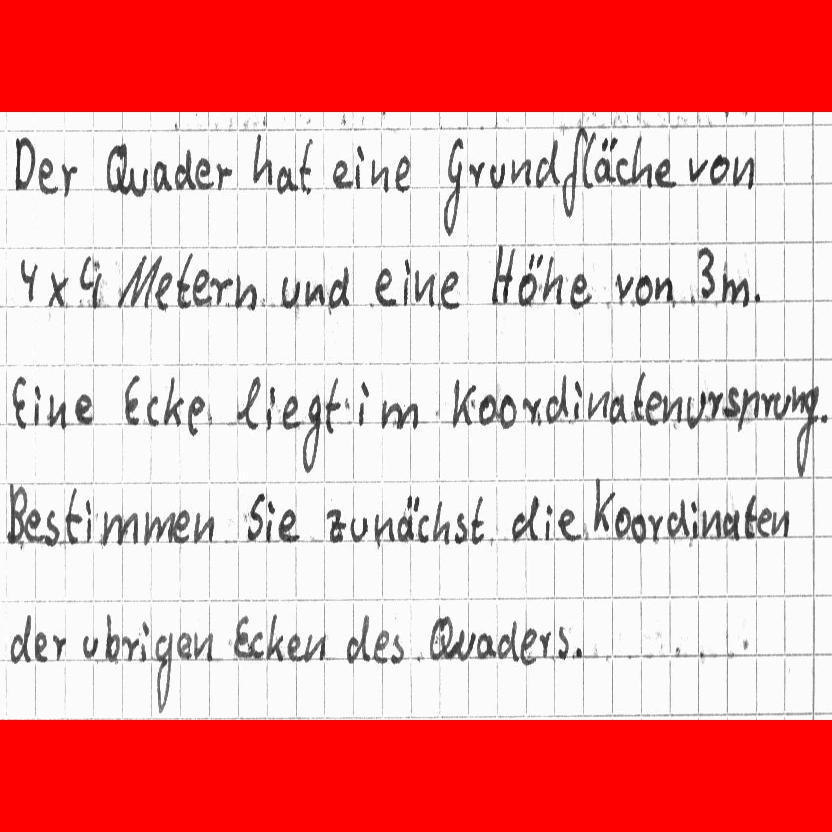 Der Quader hat eine Grundfläche von
4 x 4 Metern und eine Höhe von 3m.
Eine Ecke liegt im Koordinatenursprung.
Bestimmen Sie zunächst die Koordinaten
der ubrigen Ecken des Quaders.